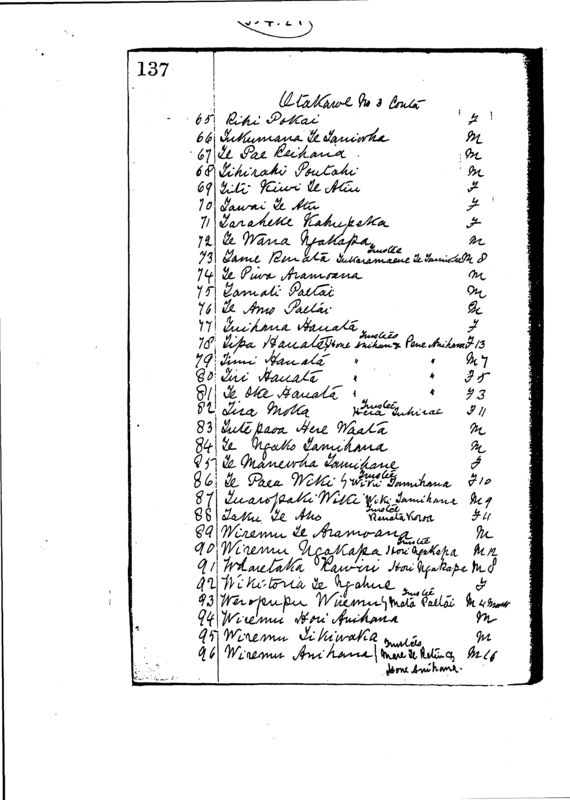 137
Otakawe No 3 Contd
65 Rihi Pokai F
66 Tukumana Te Taniwha M
67 Te Pae Reihana M
68 Tihirahi Poutahi M
69 Titi Kiwi Te Atu F
70 Tawai Te Atu F
71 Taraheke Kahupeka F
72 Te Wana Ngakapa M
73 Tame Renata Trustee Te Taniwha M 8
74 Te Piwa Aramoana M
75 Tamati Paetai M
76 Te Amo Paetai M
77 Tuihana Hauata F
78 Tipa Hauata Trustees Hone Anihana & Pene Anihana F 13
79 Timi Hauata " " M 7
80 Tiri Hauata " " F 5
81 Te Oke Hauata " " F 3
82 Tira Moka Trustee Hera F 11
83 Tutepaoa Here Waata M
84 Te Ngako Tamihana M
85 Te Manewha Tamihana F
86 Te Paea Wiki Trustee Wiki Tamihana F 10
87 Tuaropaki Wiki Wiki Tamihana M 9
88 Taku Te Aho Trustee Renata F 4
89 Wiremu Te Aramoana M
90 Wiremu Ngakapa Trustee Hori Ngakapa M 12
91 Wharetaka Rawiri Hori Ngakapa M 8
92 Wikitoria Te Ngahue F
93 Weropupu Wiremu Trustee Mata Paetai M 4
94 Wiremu Hori Anihana M
95 Wiremu Tikiwaka M
96 Wiremu Anihana Trustees Mere Te & M 16
Hone Anihana.